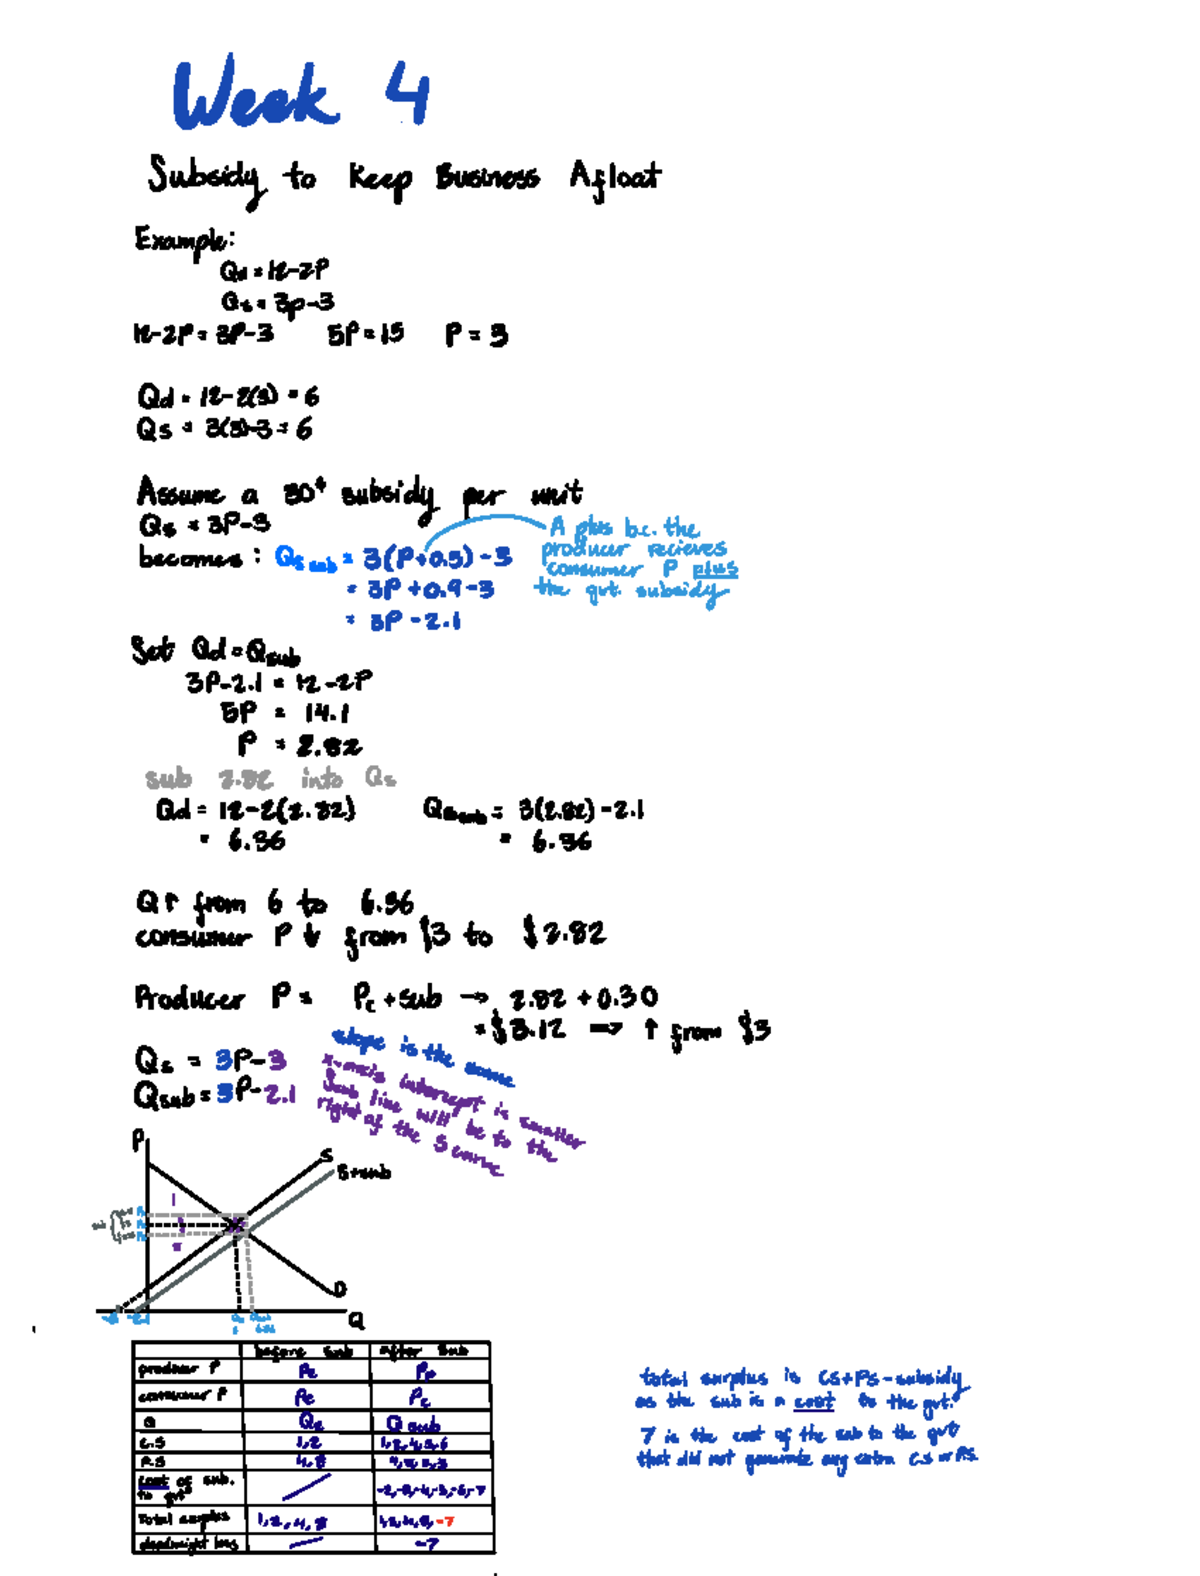 Week 4
Subsidy to Keep Business Afloat
Example:
Qd = 12-2P
Qs = 3p-3
12-2P = 3P-3 5P = 15 P = 3
Qd = 12-2(3) = 6
Qs = 3(3)-3 = 6
Assume a 30¢ subsidy per unit
Qs = 3P-3
becomes: Qs sub = 3(P+0.3) -3
= 3P +0.9 -3
= 3P -2.1
A plus b.c. the
producer recieves
consumer P plus
the gvt. subsidy
Set Qd = Qsub
3P-2.1 = 12-2P
5P = 14.1
P = 2.82
sub 2.82 into Qs
Qd = 12-2(2.82) Qs sub = 3(2.82) -2.1
= 6.36 = 6.36
Q↑ from 6 to 6.36
consumer P ↓ from $3 to $2.82
Producer P = Pc + sub → 2.82 + 0.30
= $3.12 ⇒ ↑ from $3
Qs = 3P-3
Qsub = 3P-2.1
slope is the same
x-axis intercept is smaller
Ssub line will be to the
right of the S curve
P
S
S+sub
D
Q
before sub after sub
producer P Pe Pp
consumer P Pe Pc
Q Qe Q sub
C.S 1,2
P.S
cost of sub.
to gvt
Total surplus 1,2,4,8 -7
deadweight loss -7
total surplus is CS+PS-subsidy
as the sub is a cost to the gvt.
7 is the cost of the sub to the gvt
that did not generate any extra CS or PS.